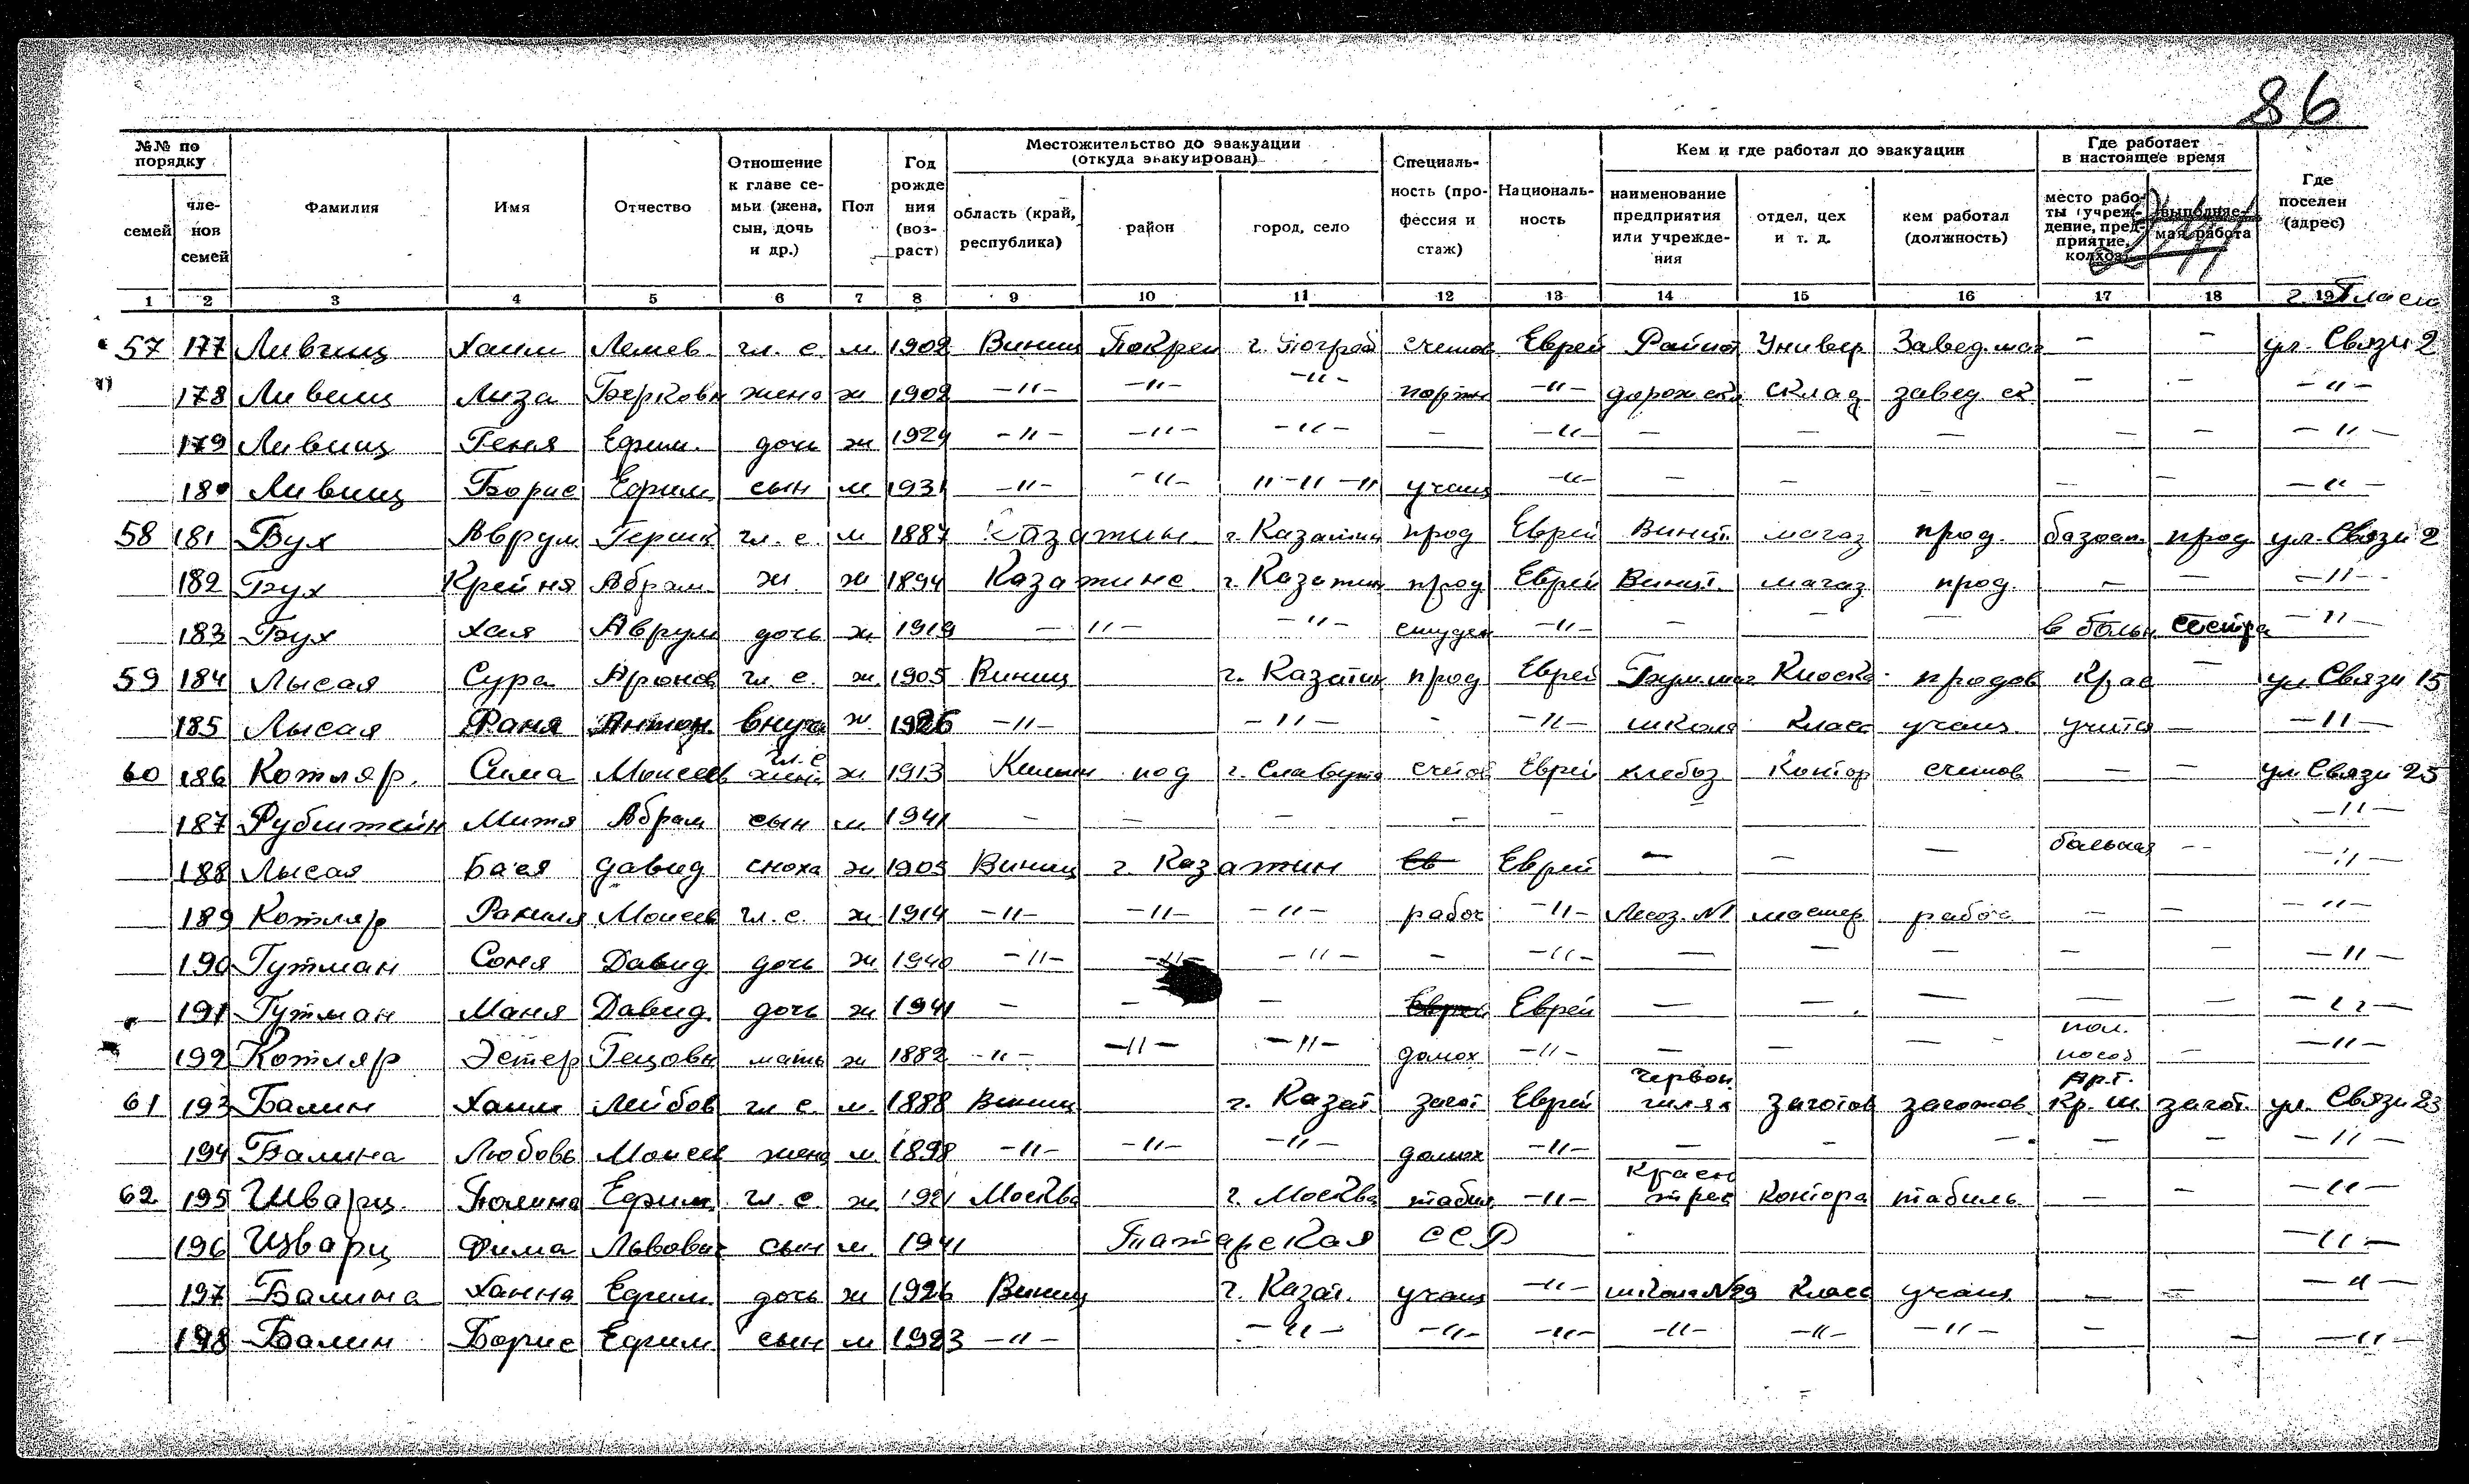 86
№№ по порядку
семей
чле- нов семей
Фамилия
Имя
Отчество
Отношение к главе се- мьи (жена, сын, дочь и др.)
Пол
Год рожде ния (воз- раст)
Местожительство до эвакуации (откуда эвакуирован)
область (край, республика)
район
город, село
Специаль- ность (про- фессия и стаж)
Националь- ность
Кем и где работал до эвакуации
наименование предприятия или учрежде- ния
отдел, цех и т. д.
кем работал (должность)
Где работает в настоящее время
место рабо- ты (учреж- дение, пред- приятие, колхоз)
выполняе- мая работа
Где поселен (адрес)
1 2 3 4 5 6 7 8 9 10 11 12 13 14 15 16 17 18 19
г. Пласт
57 177 Лившиц Хаим Лемев гл. с. м. 1902 Винниц г. счетов Еврей Универ Завед. маг — — ул. Связи 2
178 Лившиц Лиза Берковн жена ж 1902 —"— —"— —"— портн —"— склад завед ск — — —"—
179 Лившиц Геня Ефим. дочь ж 1924 —"— —"— —"— — —"— — — — — — —"—
180 Лившиц Борис Ефим сын м 1931 —"— —"— "—"—" учащ —"— — — — — — —"—
58 181 Бух Аврум Гершк гл. с. м 1887 Казатин г. Казатин прод Еврей магаз прод. прод ул. Связи 2
182 Бух Крейня Абрам. ж. ж 1894 Казатине г. Казатин прод Еврей магаз прод. — — —"—
183 Бух Хая Аврум дочь ж 1919 —"— —"— студен —"— — — — в больн. сестра —"—
59 184 Лысая Сура Аронов гл. с. ж. 1905 Винниц г. Казатин прод Еврей Киоска продав Крас — ул Связи 15
185 Лысая Раня Антон. внучка ж 1926 —"— —"— - —"— школа Класс учащ учится — —"—
60 186 Котляр. Сима Моисеев гл. с ж 1913 под г. Славута счетов Еврей хлебоз. Контор счетов — — ул Связи 25
187 Рубинштейн Митя Абрам сын м 1941 — — — — — — —"—
188 Лысая Бася Давид сноха ж 1905 Винниц г. Казатин Ев Еврей — — — больная — —"—
189 Котляр Рахиля Моисев гл. с. ж 1914 —"— —"— —"— рабоч —"— Лесоз. №1 мастер рабоч — — —"—
190 Гутман Соня Давид дочь ж 1940 —"— —"— —"— — —"— — — — — — —"—
191 Гутман Маня Давид. дочь ж 1941 — — — Еврей Еврей — — — — — —"—
192 Котляр Эстер Гецовн мать ж 1882 —"— —"— —"— домох —"— — — — пол. пособ — —"—
61 193 Балин Хаим Лейбов гл с. м. 1888 Винниц г. Казат загот Еврей Червон. заготов заготов. Арт. Кр. ш. загот. ул. Связи 23
194 Балина Любовь Моисев жена м. 1898 —"— —"— —"— домох —"— — — — — — —"—
62 195 Шварц Полина Ефим. гл. с. ж 1921 Москва г. Москва табил —"— Красн трес Контора табиль — — —"—
196 Шварц Фима Львович сын м. 1941 Татарская ССР —"—
197 Балина Ханна Ефим. дочь ж 1926 Винниц г. Казат. учащ —"— школа №29 Класс учащ — — —"—
198 Балин Борис Ефим. сын м 1923 —"— —"— —"— —"— —"— —"— —"— — — —"—